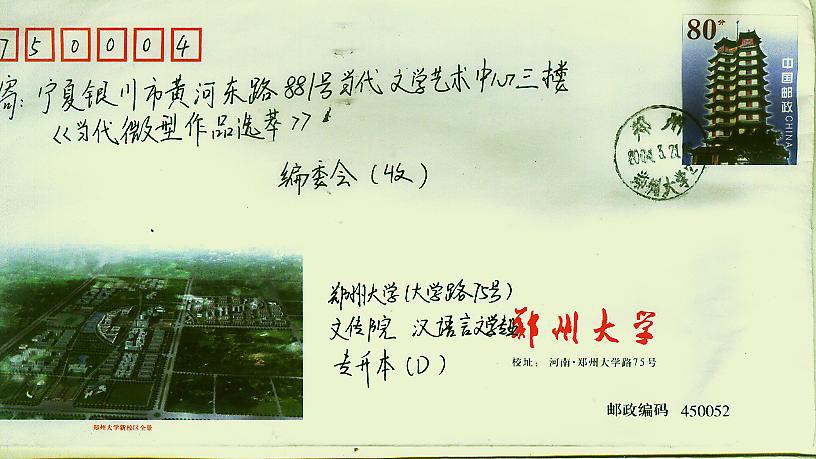 750004
80分
中国邮政 CHINA
寄: 宁夏银川市黄河东路881号当代文学艺术中心三楼
《当代微型作品选萃》
编委会(收)
郑州
郑州大学
郑州大学(大学路75号)
文传院 汉语言文学专业
专升本(D)
郑州大学
校址: 河南·郑州大学路75号
邮政编码 450052
郑州大学新校区全景